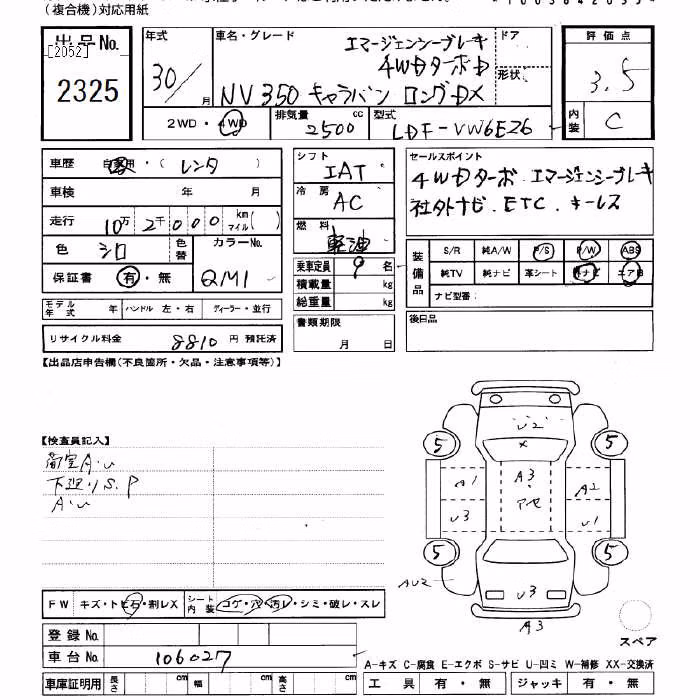 (複合機)対応用紙
出品No.
[2052]
2325
年式 30/ 月
車名・グレード エマージェンシーブレーキ
4WDターボD
NV350 キャラバン ロングDX
ドア
形状
評価点 3.5
内装 C
2WD・4WD
排気量 2500 cc
型式 LDF-VW6E26
車歴 自家用・(レンタ)
車検 年 月
走行 10万 2千 000 km マイル( )
色 シロ 色替
カラーNo. QM1
保証書 有・無
モデル年式 年 ハンドル 左・右 ディーラー・並行
リサイクル料金 8810 円 預託済
シフト IAT
冷房 AC
燃料 軽油
乗車定員 9 名
積載量 kg
総重量 kg
書類期限
月 日
セールスポイント
4WDターボ. エマージェンシーブレーキ
社外ナビ. ETC. キーレス
装備品
S/R 純A/W P/S P/W ABS
純TV 純ナビ 革シート エアB
ナビ型番:
後日品
【出品店申告欄(不良箇所・欠品・注意事項等)】
【検査員記入】
荷室A.U
下廻りS.P
A.U
U2
5 × 5
A1 A3 A2
U3 アセ U1
5 5
AU2 U3
A3
スペア
FW キズ・トビ石・割レX シート内装 コゲ・穴・汚レ・シミ・破レ・スレ
登録No.
車台No. 106027
車庫証明用 長さ cm 幅 cm 高さ cm
A-キズ C-腐食 E-エクボ S-サビ U-凹ミ W-補修 XX-交換済
工具 有・無 ジャッキ 有・無